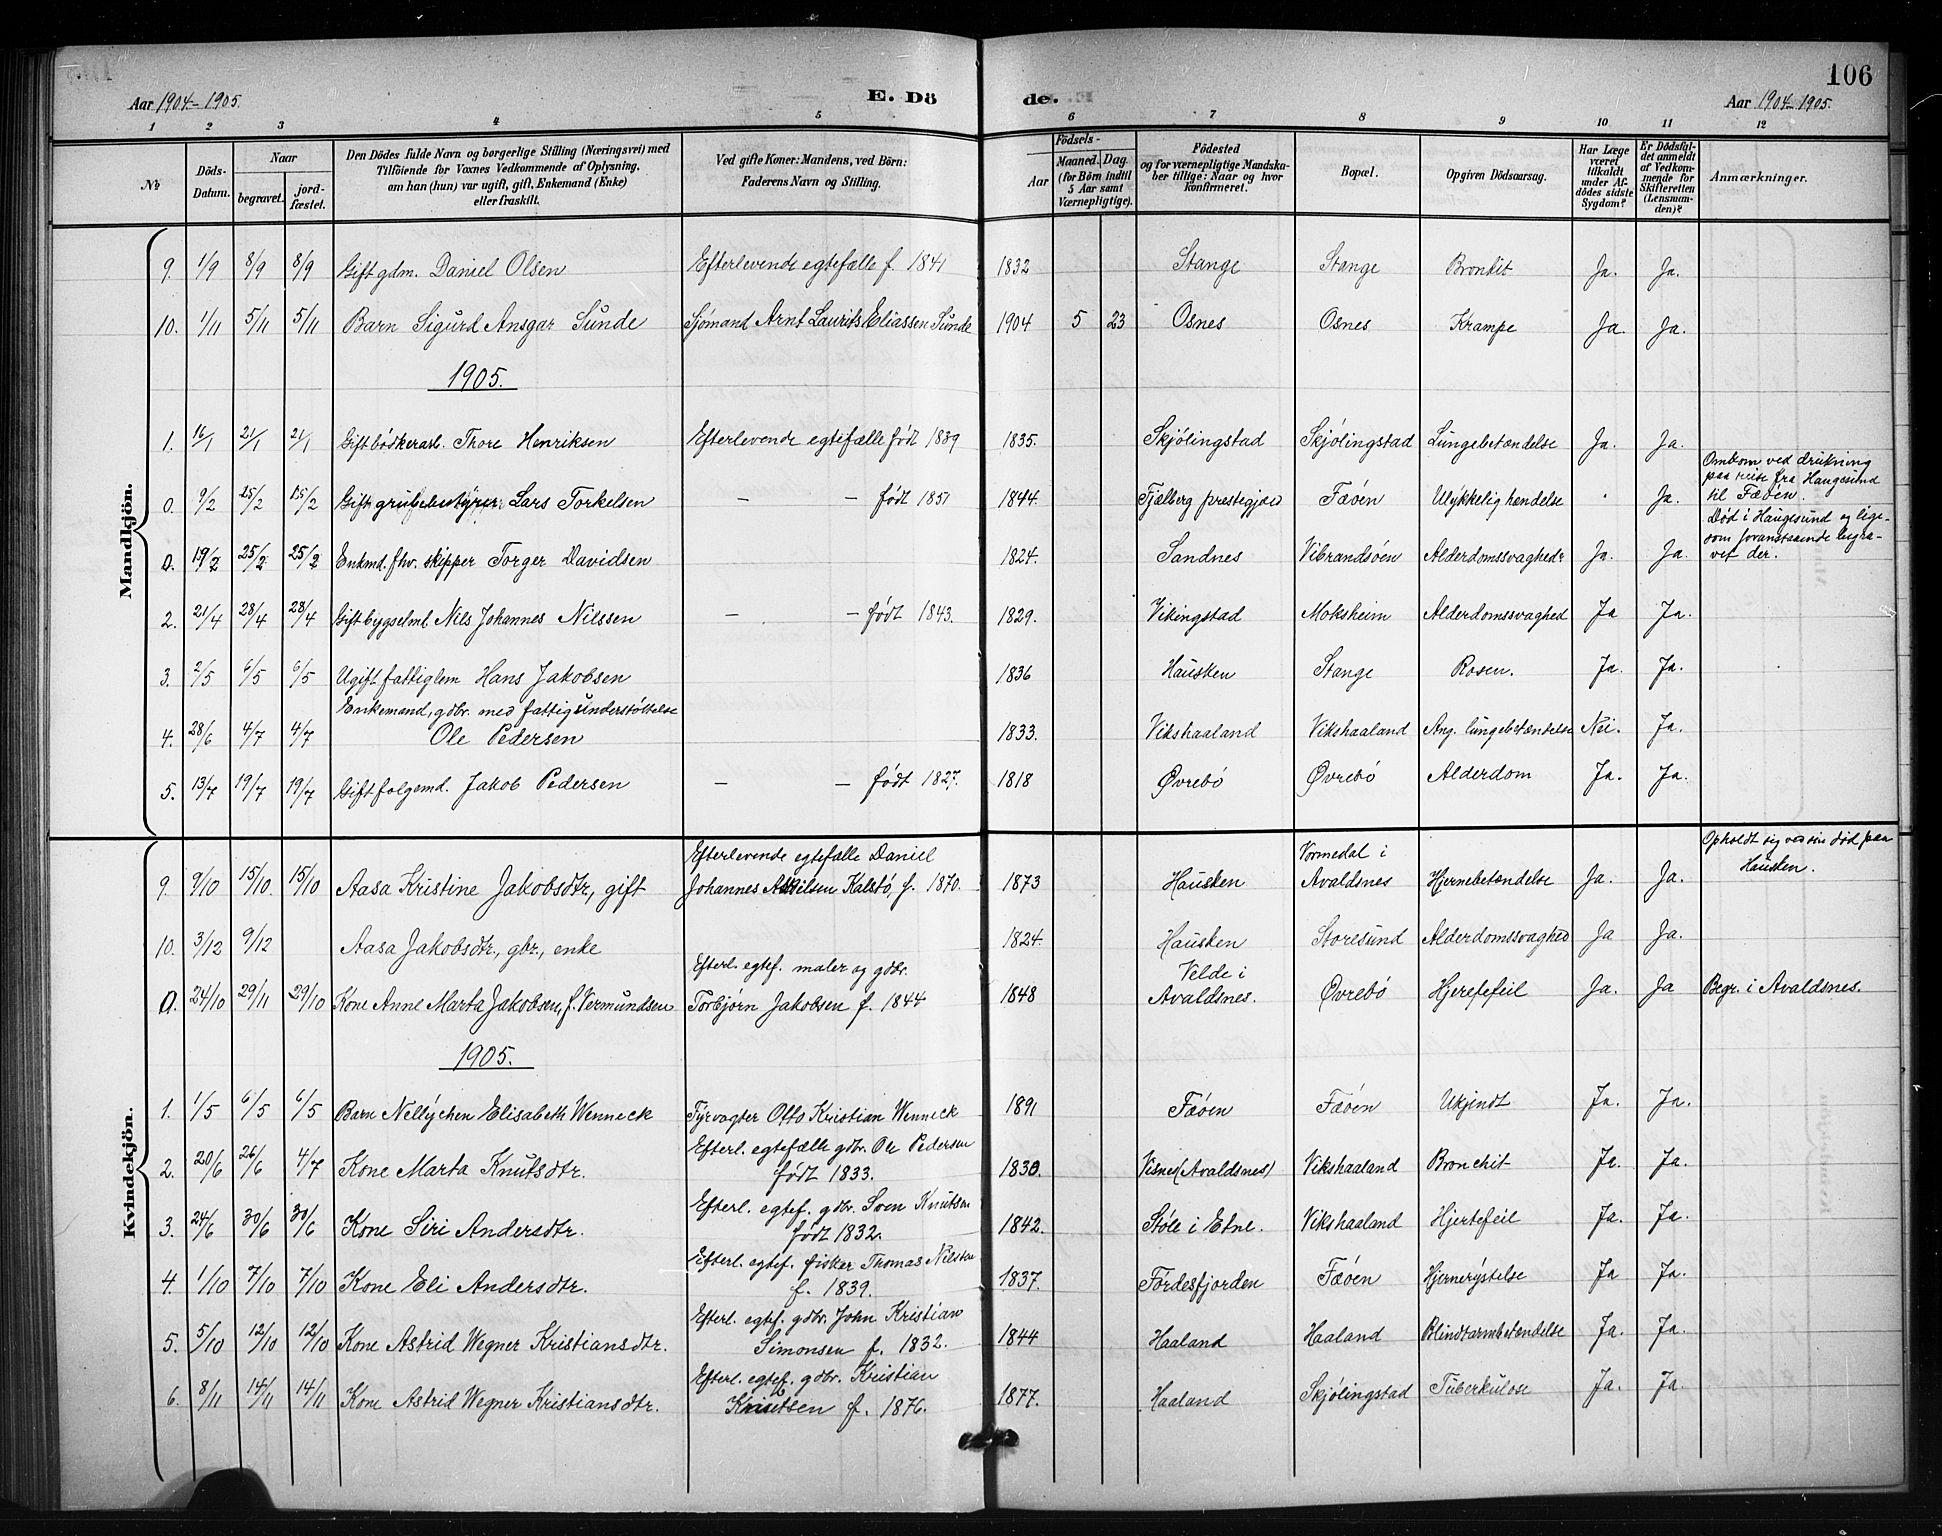 Aar 1904-1905. E. Dö de. Aar 1904-1905. 106
1 2 3 4 5 6 7 8 9 10 11 12
No Döds-Datum. Naar begravet. jord-fæstet. Den Dödes fulde Navn og borgerlige Stilling (Næringsvei) med Tilföiende for Voxnes Vedkommende af Oplysning, om han (hun) var ugift, gift, Enkemand (Enke) eller fraskilt. Ved gifte Koner: Mandens, ved Börn: Faderens Navn og Stilling. Födsels- Aar Maaned. Dag. (for Börn indtil 5 Aar samt Værnepligtige). Födested og for værnepligtige Mandska-ber tillige: Naar og hvor Konfirmeret. Bopæl. Opgiven Dödsaarsag. Har Læge været tilkaldt under Af-dödes sidste Sygdom? Er Dödsfal-det anmeldt af Vedkom-mende for Skifteretten (Lensman-den)? Anmærkninger.
Mandkjön.
9. 1/9 8/9 8/9 Gift gdm. Daniel Olsen Efterlevende egtefælle f. 1841 1832 Stange Stange Bronkit Ja. Ja.
10. 1/11 5/11 5/11 Barn Sigurd Ansgar Sunde Sjømand Arnt Laurits Eliassen Sunde 1904 5 23 Osnes Osnes Krampe Ja. Ja.
1905.
1. 16/1 21/1 21/1 Gift bødkerarb. Thore Henriksen Efterlevende egtefælle født 1839 1835. Skjølingstad Skjølingstad Lungebetændelse Ja. Ja.
0. 9/2 25/2 25/2 Gift grubebestyrer Lars Torkelsen — — født 1851 1844. Fjælberg prestegjæld Fæøen Ulykkelig hendelse Ja. Omkom ved drukning paa reise fra Haugesund til Fæøen.
0. 19/2 25/2 25/2 Enkmd. fhv. skipper Torger Davidsen 1824. Sandnes Vibrandsøen Alderdomssvaghed Ja. Ja. Død i Haugesund og lige-som foranstaaende begra-vet der.
2. 21/4 28/4 28/4 Gift bygselmd. Nils Johannes Nilssen — — født 1843. 1829. Vikingstad Moksheim Alderdomssvaghed Ja Ja.
3. 2/5 6/5 6/5 Ugift fattiglem Hans Jakobsen 1836 Hausken Stange Rosen. Ja. Ja.
4. 28/6 4/7 4/7 Enkemand, gdbr. med fattigunderstøttelse
Ole Pedersen 1833. Vikshaaland Vikshaaland Ang. lungebetændelse Nei. Ja.
5. 13/7 19/7 19/7 Gift folgemd. Jakob Pedersen — — født 1827. 1818 Øvrebø Øvrebø Alderdom Ja. Ja.
Kvindekjön.
9. 9/10 15/10 15/10 Aasa Kristine Jakobsdtr, gift Efterlevende egtefælle Daniel Johannes Kalstø, f. 1870. 1873 Hausken Vormedal i Avaldsnes Hjernebetændelse Ja. Ja. Opholdt sig ved sin død paa Hausken.
10. 3/12 9/12 Aasa Jakobsdtr., gbr., enke 1824. Hausken Storesund Alderdomssvaghed Ja Ja.
0. 24/10 29/11 29/10 Kone Anne Marta Jakobsen, f. Vermundsen Efterl. egtef. maler og gdbr. Torbjørn Jakobsen f. 1844 1848 Velde i Avaldsnes. Øvrebø Hjertefeil Ja. Ja Begr. i Avaldsnes.
1905.
1. 1/5 6/5 6/5 Barn Nellychen Elisabeth Wenneck Fyrvagter Otto Kristian Wenneck 1891 Fæøen Fæøen Ukjendt Ja. Ja.
2. 20/6 26/6 4/7 Kone Marta Knutsdtr. Efterl. egtefælle gdbr. Ole Pedersen født 1833. 1830. Visnes (Avaldsnes) Vikshaaland Bronchit Ja. Ja.
3. 24/6 30/6 30/6 Kone Siri Andersdtr. Efterl. egtef. gdbr. Sven Knutsen født 1832. 1842. Støle i Etne. Vikshaaland Hjertefeil Ja. Ja.
4. 1/10 7/10 7/10 Kone Eli Andersdtr. Efterl. egtef. fisker Thomas Nilsen f. 1839. 1837. Førdesfjorden Fæøen Hjernerystelse Ja Ja.
5. 5/10 12/10 12/10 Kone Astrid Wegner Kristiansdtr. Efterl. egtef. gdbr. John Kristian Simonsen f. 1832. 1844 Haaland Haaland Blindtarmbetændelse Ja. Ja.
6. 8/11 14/11 14/11 Kone Astrid Wegner Kristiansdtr. Efterl. egtef. gdbr. Kristian Knutsen f. 1876. 1877. Haaland Skjølingstad Tuberkulose Ja. Ja.